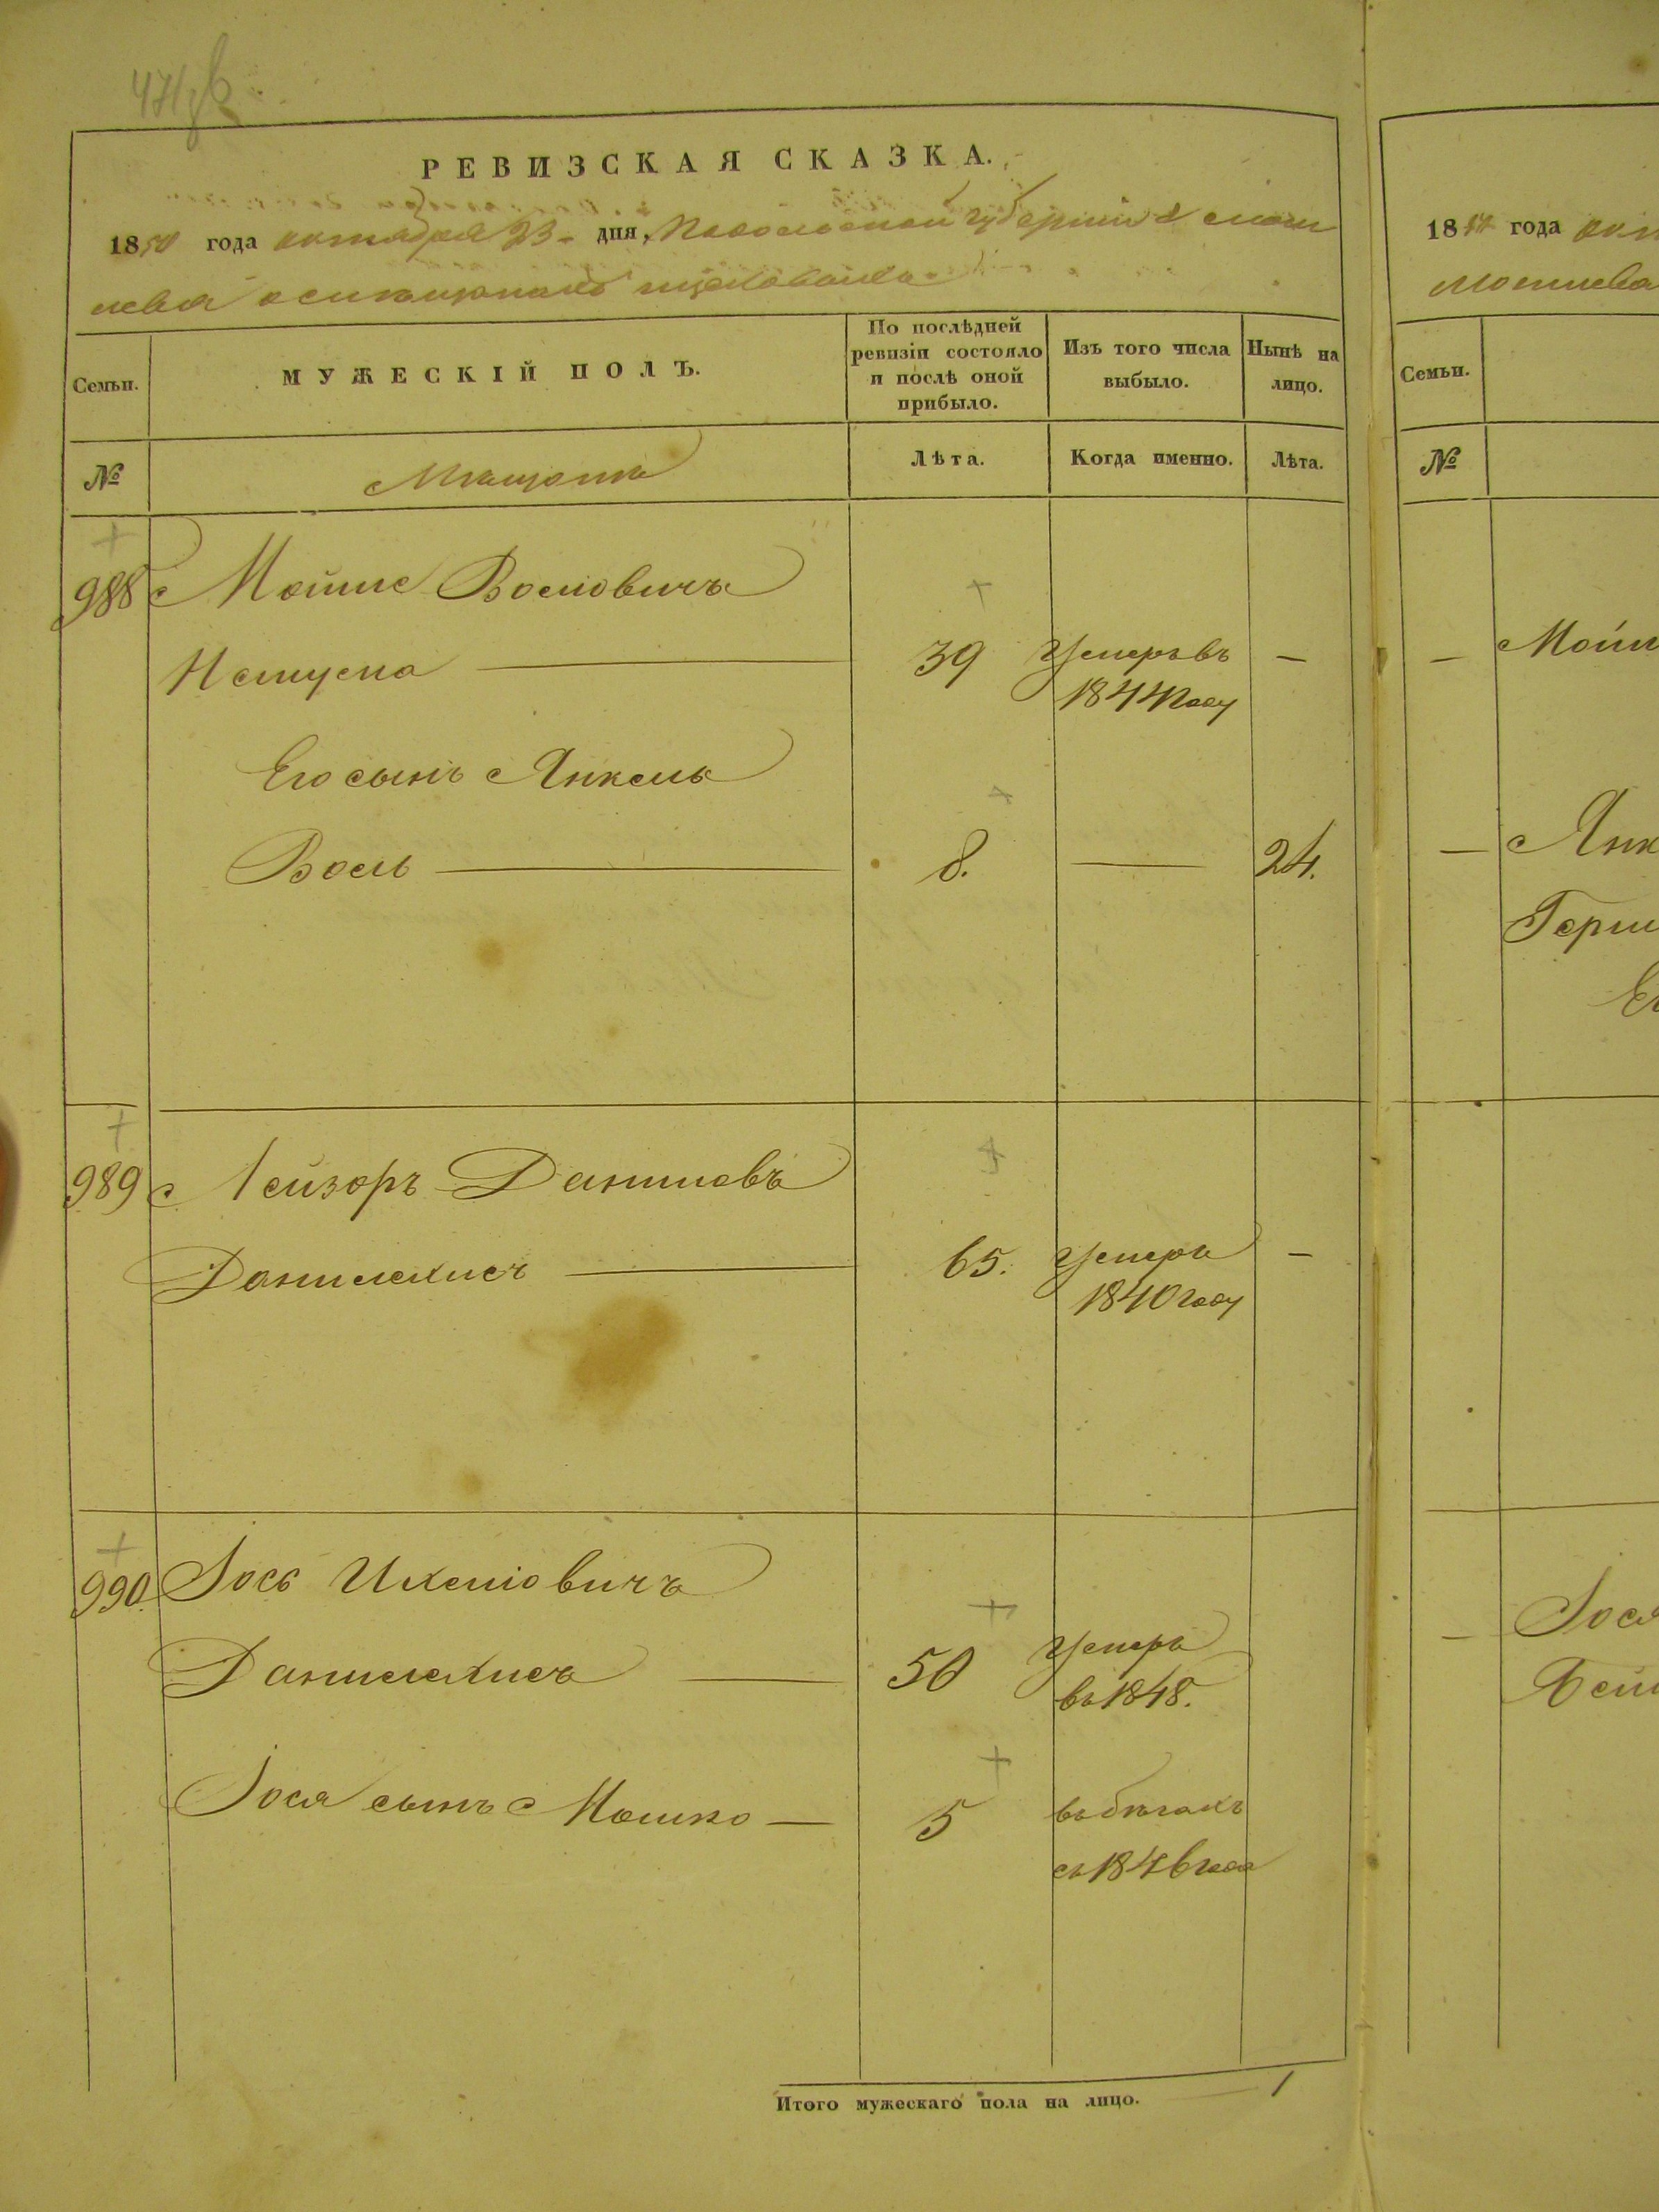 РЕВИЗСКАЯ СКАЗКА.
1850 года октября 23 дня, Подольской губернии Моги
лева о мѣщанахъ
Семьи.
МУЖЕСКІЙ ПОЛЪ.
По послѣдней ревизіи состояло и послѣ оной прибыло.
Изъ того числа выбыло.
Нынѣ на лицо.
№
Мѣщане
Лѣта.
Когда именно.
Лѣта.
988 Мойше Вольовичъ
39 Умеръ въ —
1844 году
Его сынъ Янкель
Воль 8. — 24.
989 Лейзоръ Даниловъ
65. Умеръ —
1840 году
990 Іось Ихелiовичъ
50 Умеръ
въ 1848.
Іося сынъ Мошко — 5 въ бѣгахъ
съ 1846 года
Итого мужескаго пола на лицо. 1
18 года
Могилева
Семьи.
№
— Мойш
— Янк
Герш
— Іося